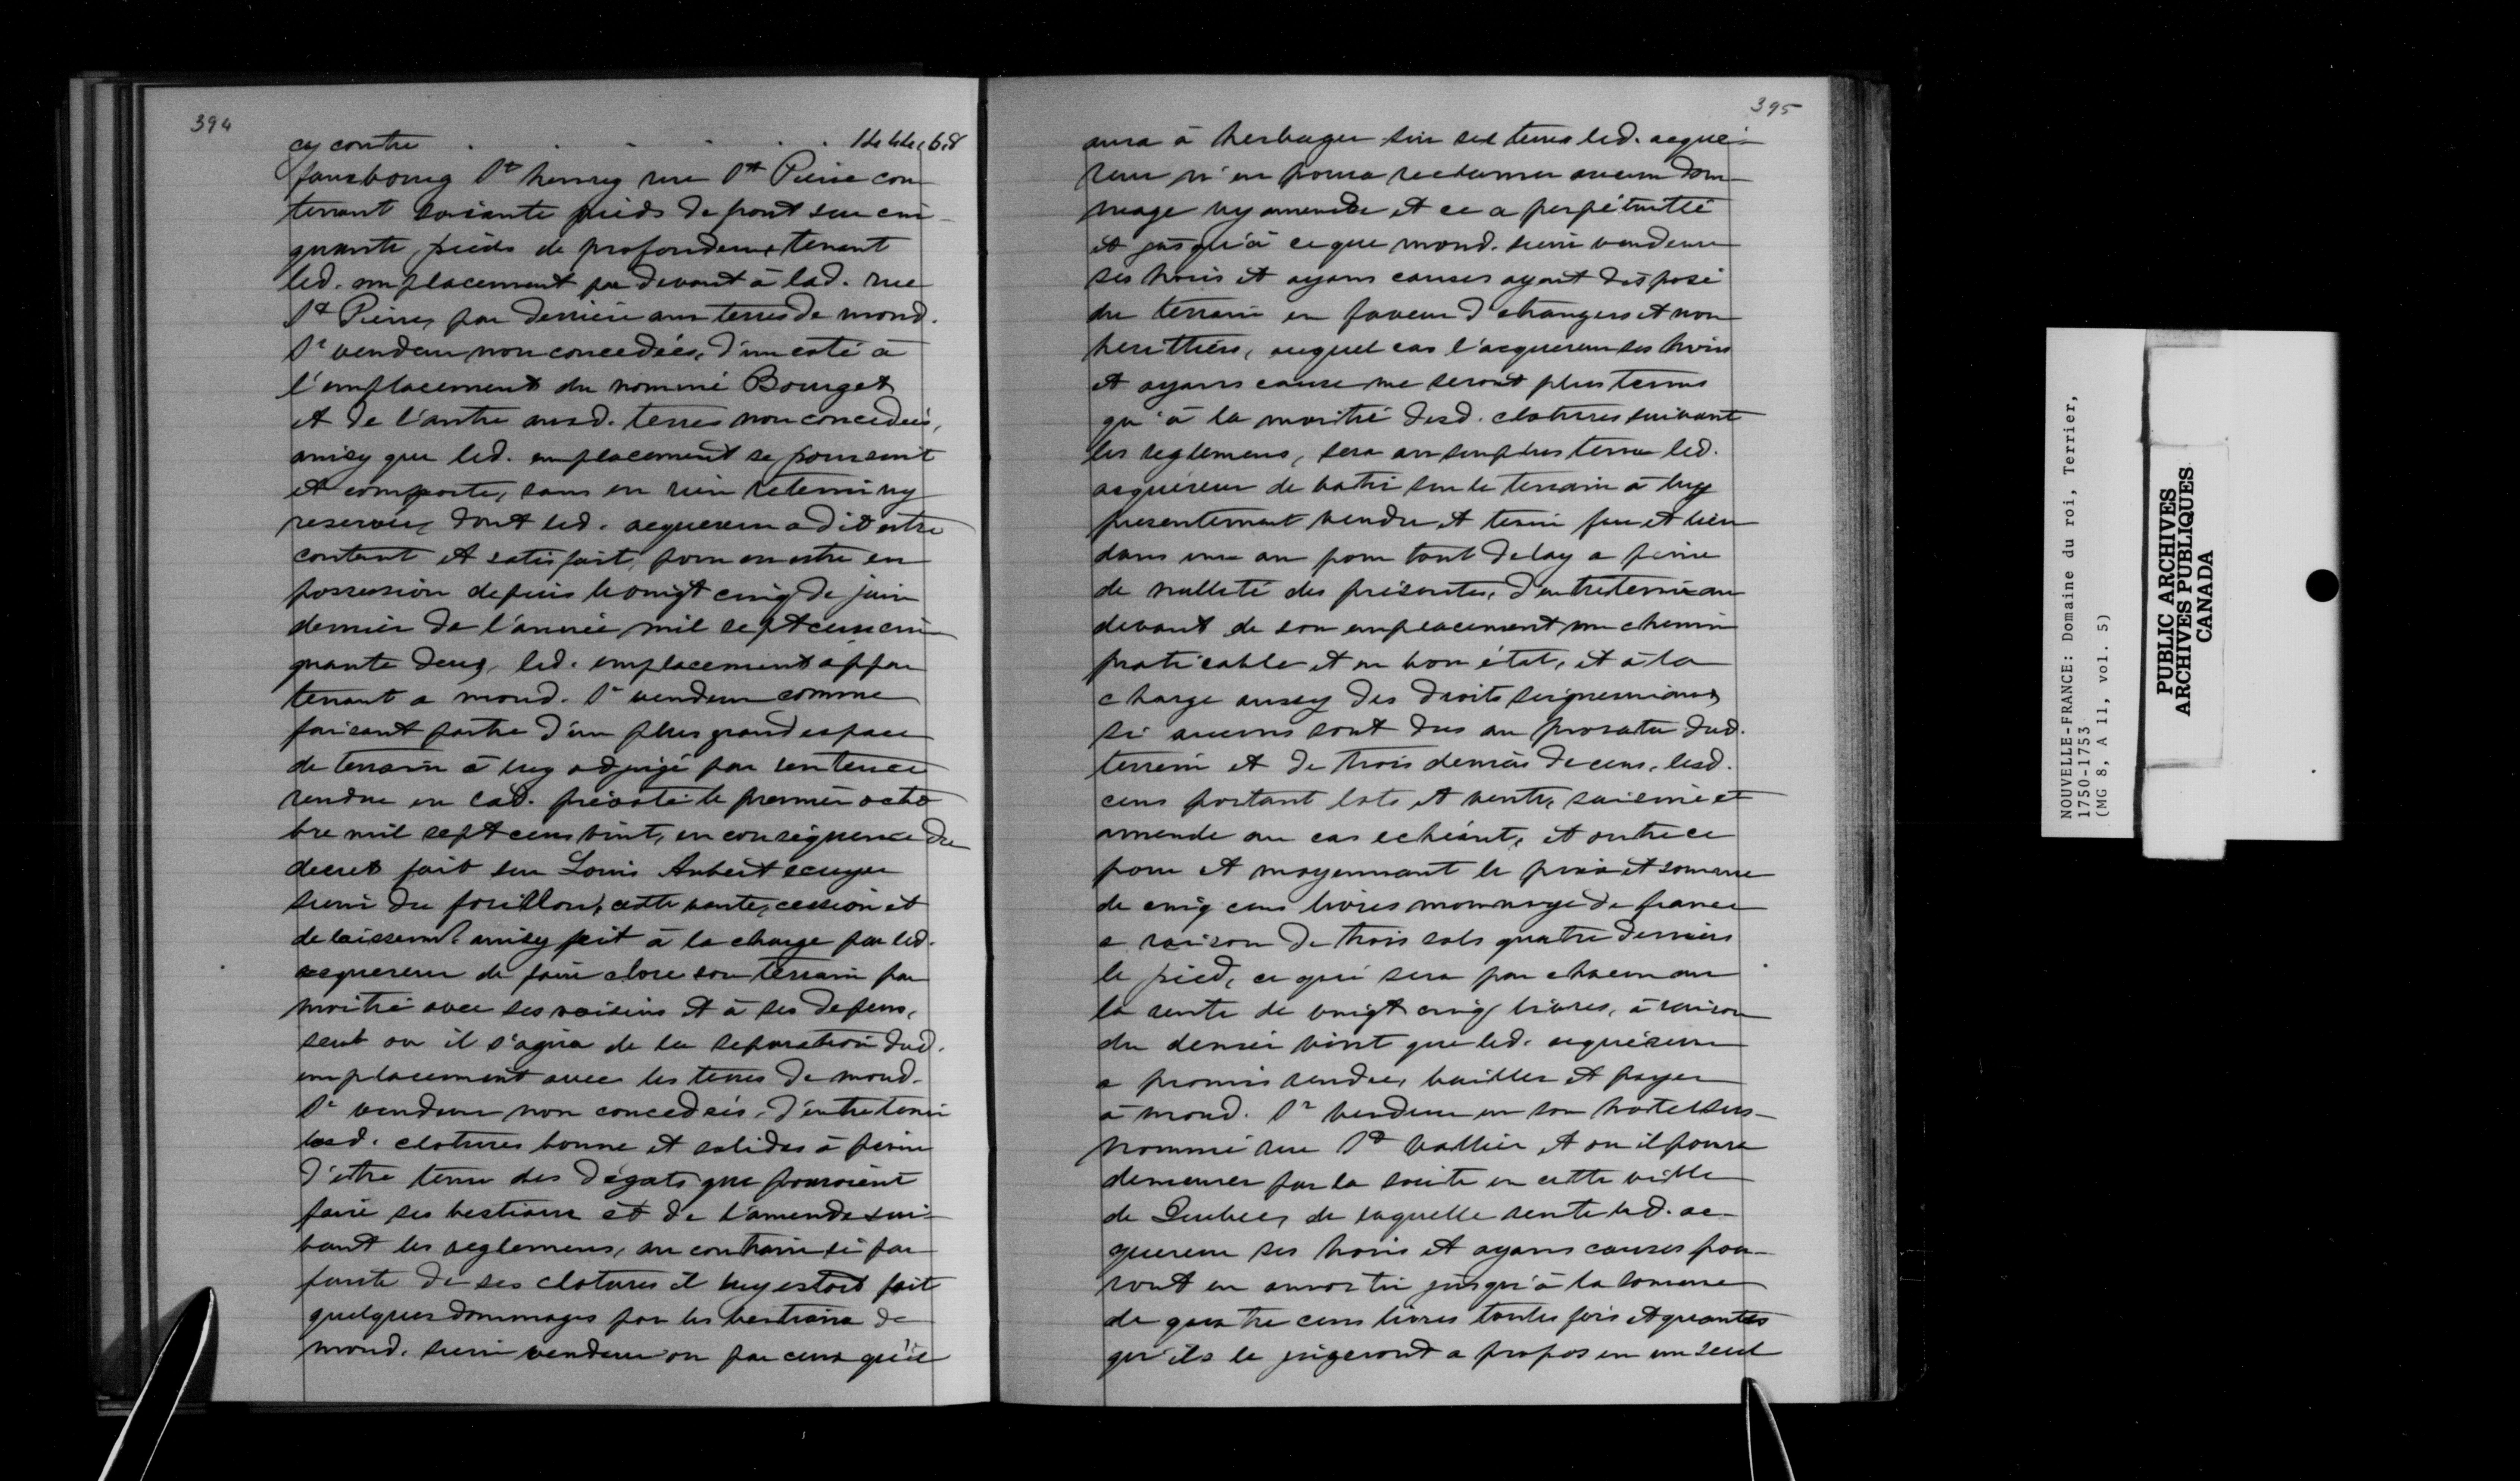 394
cy contre . . . . . 1444,,6,8
fauxbourg St henry rue St Pierre con-
tenant soixante pieds de front sur cin-
quante pieds de profondeur, tenant
led. emplacement par devant à lad. rue
St Pierre, par derriere aux terres de mond.
Sr vendeur non concedées, d'un coté à
l'emplacement du nommé Bourget
et de l'autre auxd. terres non concedées,
ainsy que led. emplacement se poursuit
et comporte, sans en rien retenir ny
reserver, dont led. acquereur a dit estre
contant et satisfait, pour en estre en
possession depuis le vingt cinq de juin
dernier de l'année mil sept cens cin-
quante deux, led. emplacement appar
tenant a mond. Sr vendeur comme
faisant partie d'un plus grand espace
de terrain à luy adjugé par sentence
rendue en lad. prévoté le premier octo
bre mil sept cens vint, en consequence du
decret fait sur Louis Aubert ecuyer
sieur du forillon, cette vente, cession et
delaissemt ainsy fait à la charge par led.
acquereur de faire clore son terrain par
moitié avec ses voisins et à ses depens,
seul ou il s'agira de la separation dud.
emplacement avec les terres de mond.
Sr vendeur non concedées, d'entretenir
lesd. clotures bonne et solides à peine
d'être tenu des dégats que pouroient
faire ses bestiaux et de l'amende sui-
vant les reglemens, au contraire si par
faute de ses clotures il luy estoit fait
quelques dommages par les bestiaux de
mond. sieur vendeur ou par ceux qu'il
395
aura à herbager sur ses terres led. acqué-
reur n'en poura reclamer aucun dom-
mage ny amende et ce a perpétuité
et jusqu'à ce que mond. sieur vendeur
ses hoirs et ayans causes ayent disposé
du terrain en faveur d'etrangers et non
heritiers, auquel cas l'acquereur ses hoirs
et ayans cause ne seront plus tenus
qu'à la moitié desd. clotures suivant
les reglemens, sera au surplus tenu led.
acquereur de batir sur le terrain à luy
presentement vendu et tenir feu et lieu
dans un an pour tout delay a peine
de nulleté des présentes, d'entretenir au
devant de son emplacement un chemin
praticable et en bon état, et à la
charge aussy des droits seigneuriaux
si aucuns sont dus au prorata dud.
terrein et de trois deniers de cens, lesd.
cens portant lots et vente, saisine et
amende au cas echéant, et outre ce
pour et moyennant le prix et somme
de cinq cens livres monnoye de france
a raison de trois sols quatre deniers
le pied, ce qui sera par chacun an
la rente de vingt cinq livres, à raison
du denier vint que led. acquéreur
a promis rendre, bailler et payer
à mond. Sr vendeur en son hotel sus-
nommé rue St Vallier, et ou il poura
demeurer par la suite en cette ville
de Quebec, de laquelle rente led. ac-
quereur ses hoirs et ayans causes pou-
ront en amortir jusqu'à la somme
de quatre cens livres toutes fois et quantes
qu'ils le jugeront a propos en un seul
NOUVELLE-FRANCE: Domaine du roi, Terrier,
1750-1753
(MG 8, A 11, vol. 5)
PUBLIC ARCHIVES
ARCHIVES PUBLIQUES
CANADA